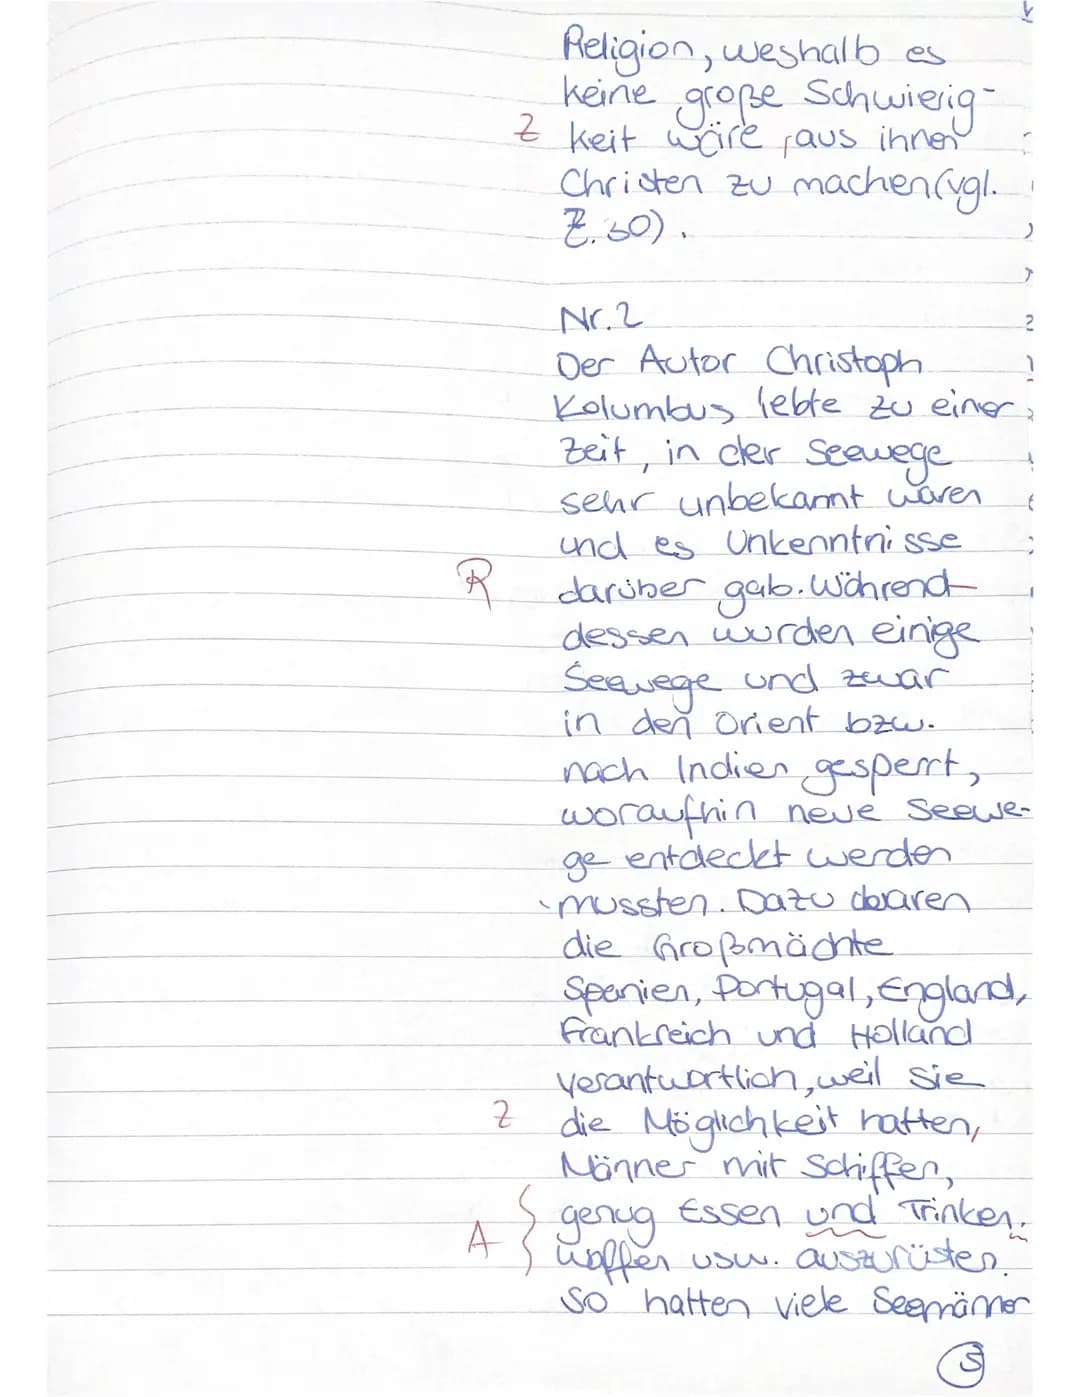 Religion, weshalb es
keine große Schwierig-
Z keit wäre, aus ihnen
Christen zu machen (vgl.
Z. 30).
Nr. 2
Der Autor Christoph
Kolumbus lebte zu einer
Zeit, in der Seewege
sehr unbekannt waren
und es Unkenntnisse
R darüber gab. Während
dessen wurden einige
Seewege und zwar
in den Orient bzw.
nach Indien gesperrt,
woraufhin neue Seewe-
ge entdeckt werden
mussten. Dazu waren
die Großmächte
Spanien, Portugal, England,
Frankreich und Holland
verantwortlich, weil sie
Z die Möglichkeit hatten,
Männer mit Schiffen,
genug Essen und Trinken.
A Waffen usw. auszurüsten.
So hatten viele Seemänner
5